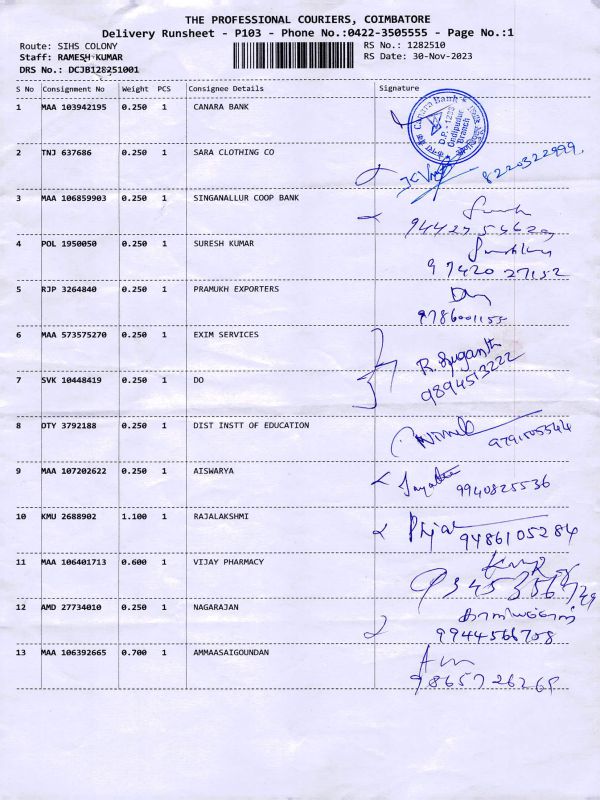 THE PROFESSIONAL COURIERS, COIMBATORE
Delivery Runsheet - P103 - Phone No.:0422-3505555 - Page No.:1
Route: SIHS COLONY RS No.: 1282510
Staff: RAMESH KUMAR RS Date: 30-Nov-2023
DRS No.: DCJB128251001
S No Consignment No Weight PCS Consignee Details Signature
1 MAA 103942195 0.250 1 CANARA BANK
Canara Bank
D.P. - 1239
Ondipudur
Branch
2 TNJ 637686 0.250 1 SARA CLOTHING CO 8220322999
3 MAA 106859903 0.250 1 SINGANALLUR COOP BANK
4 POL 1950050 0.250 1 SURESH KUMAR
97420 27152
5 RJP 3264840 0.250 1 PRAMUKH EXPORTERS
9786001155
6 MAA 573575270 0.250 1 EXIM SERVICES
R. Suganth
7 SVK 10448419 0.250 1 DO
9894513222
8 OTY 3792188 0.250 1 DIST INSTT OF EDUCATION
9 MAA 107202622 0.250 1 AISWARYA
9940825536
10 KMU 2688902 1.100 1 RAJALAKSHMI
9486105284
11 MAA 106401713 0.600 1 VIJAY PHARMACY
12 AMD 27734010 0.250 1 NAGARAJAN
9944566708
13 MAA 106392665 0.700 1 AMMAASAIGOUNDAN
9865726265